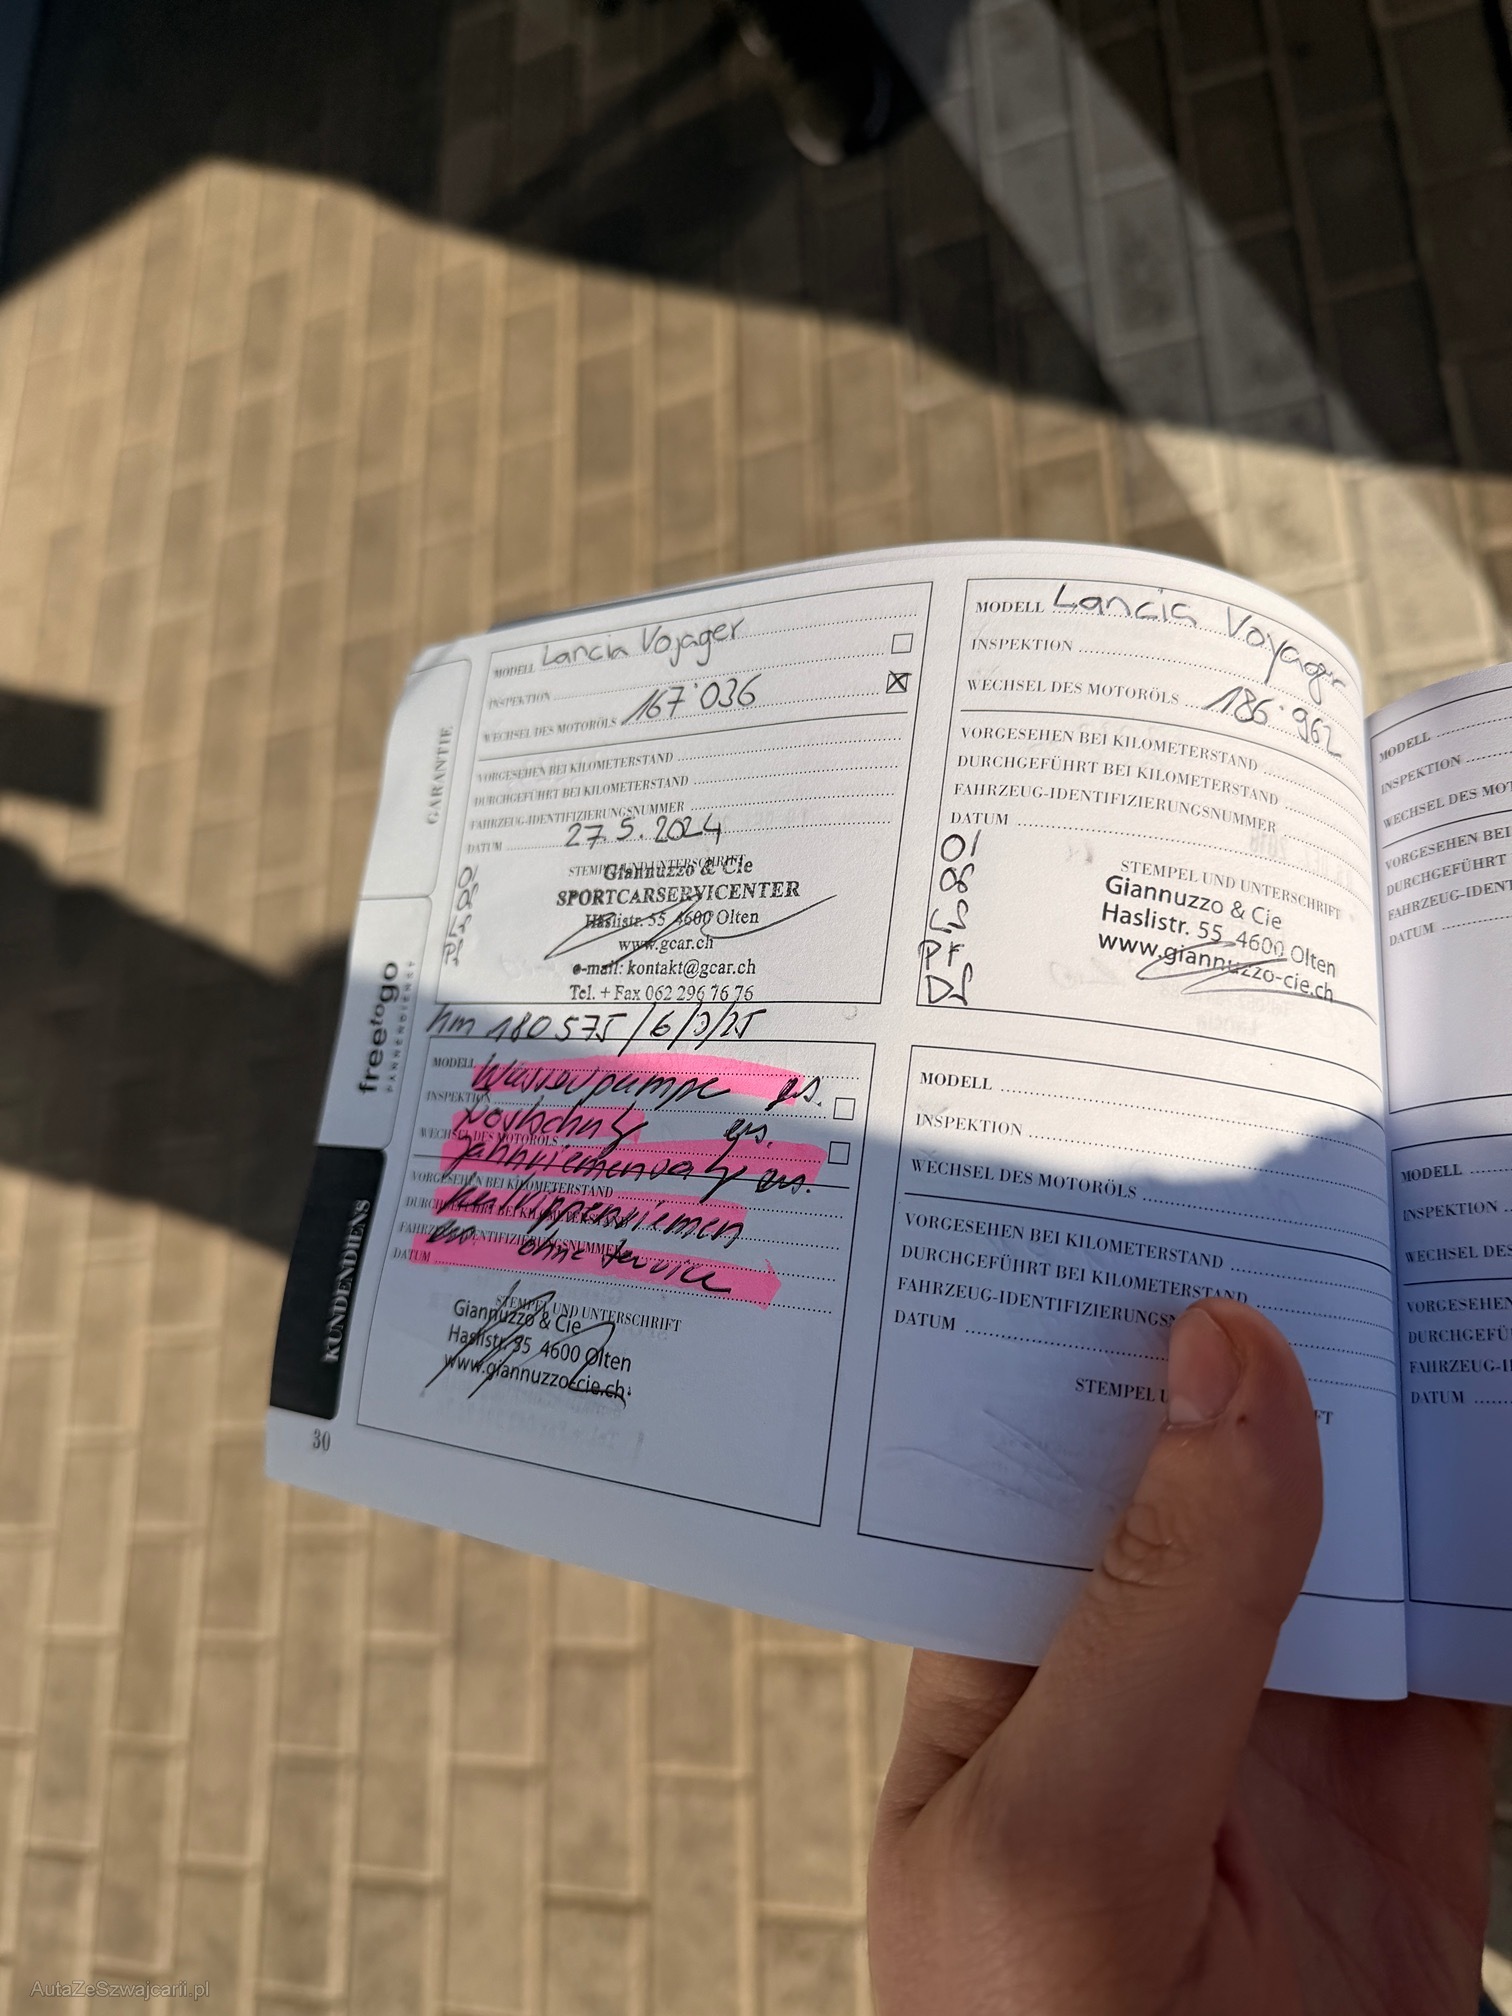 GARANTIE
freetogo
PANNENDIENST
KUNDENDIENS
30
MODELL Lancia Voyager
INSPEKTION
WECHSEL DES MOTORÖLS 167'036
VORGESEHEN BEI KILOMETERSTAND
DURCHGEFÜHRT BEI KILOMETERSTAND
FAHRZEUG-IDENTIFIZIERUNGSNUMMER
DATUM 27.5.2024
STEMPEL UND UNTERSCHRIFT
Giannuzzo & Cie
SPORTCARSERVICENTER
Haslistr. 55 4600 Olten
www.gcar.ch
e-mail: kontakt@gcar.ch
Tel. + Fax 062 296 76 76
MODELL Lancia Voyager
INSPEKTION
WECHSEL DES MOTORÖLS 186'962
VORGESEHEN BEI KILOMETERSTAND
DURCHGEFÜHRT BEI KILOMETERSTAND
FAHRZEUG-IDENTIFIZIERUNGSNUMMER
DATUM
STEMPEL UND UNTERSCHRIFT
Giannuzzo & Cie
Haslistr. 55 4600 Olten
www.giannuzzo-cie.ch
PF
km 180575/6/3/25
MODELL Wasserpumpe ers.
INSPEKTION ers.
WECHSEL DES MOTORÖLS
Zahnriemensatz ers.
VORGESEHEN BEI KILOMETERSTAND
DURCHGEFÜHRT BEI KILOMETERSTAND
Keilrippenriemen
FAHRZEUG-IDENTIFIZIERUNGSNUMMER
ohne Service
DATUM
STEMPEL UND UNTERSCHRIFT
Giannuzzo & Cie
Haslistr. 55 4600 Olten
www.giannuzzo-cie.ch
MODELL
INSPEKTION
WECHSEL DES MOTORÖLS
VORGESEHEN BEI KILOMETERSTAND
DURCHGEFÜHRT BEI KILOMETERSTAND
FAHRZEUG-IDENTIFIZIERUNGSN
DATUM
STEMPEL U
FT
MODELL
INSPEKTION
WECHSEL DES MOT
VORGESEHEN BEI
DURCHGEFÜHRT
FAHRZEUG-IDENT
DATUM
MODELL
INSPEKTION
WECHSEL DES
VORGESEHEN
DURCHGEFÜ
FAHRZEUG-I
DATUM
AutaZeSzwajcarii.pl